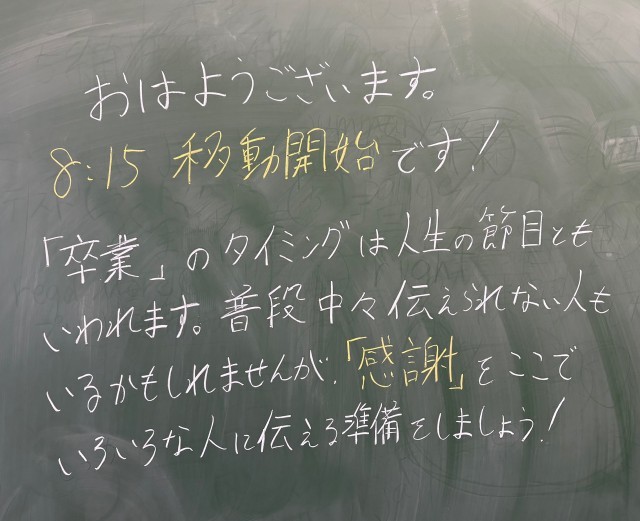 おはようございます。
8:15 移動開始です!
「卒業」のタイミングは人生の節目とも
いわれます。普段中々伝えられない人も
いるかもしれませんが、「感謝」をここで
いろいろな人に伝える準備をしましょう!